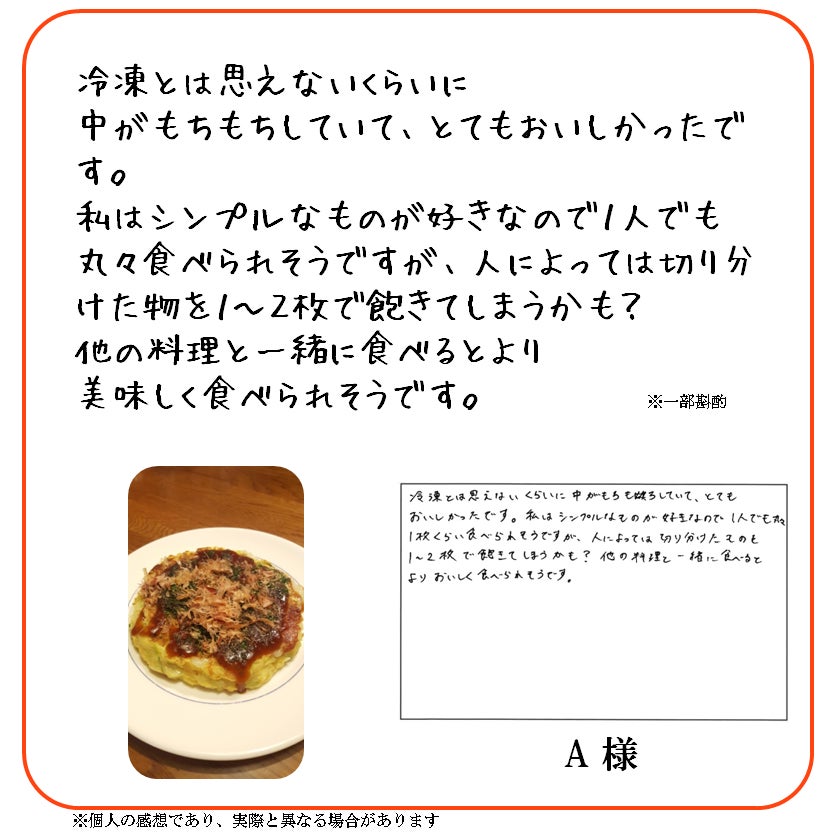 冷凍とは思えないくらいに
中がもちもちしていて、とてもおいしかったで
す。
私はシンプルなものが好きなので1人でも
丸々食べられそうですが、人によっては切り分
けた物を1～2枚で飽きてしまうかも？
他の料理と一緒に食べるとより
美味しく食べられそうです。
※一部斟酌
冷凍とは思えない くらいに 中がもちもちしていて、とても
おいしかったです。私はシンプルなものが好きなので 1人でも
1枚くらい食べられそうですが、人によっては切り分けたものも
1～2枚で飽きてしまうかも？ 他の料理と一緒に食べると
よりおいしく食べられそうです。
A 様
※個人の感想であり、実際と異なる場合があります